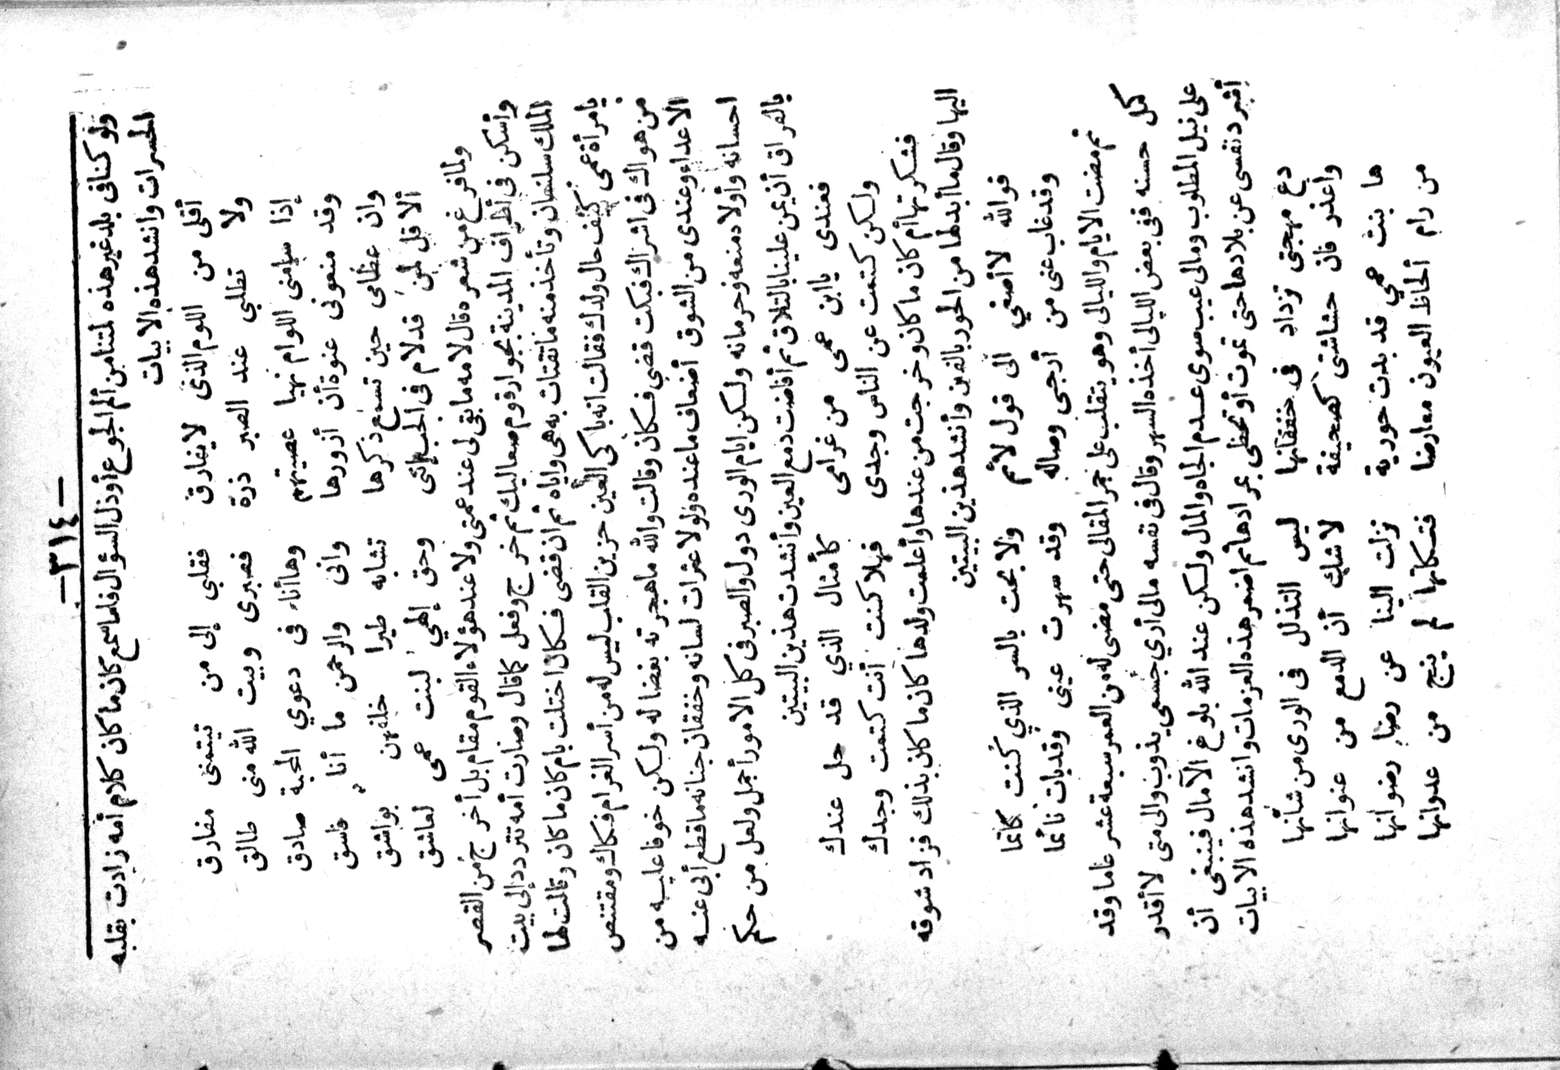 -٣١٤-
ولو كنا فى بلد غير هذه لمتنا من ألم الجوع أو ذل السؤال فلما سمع كان ما كان كلام أمه زادت بقلبه
الحسرات وانشد هذه الابيات
أقلى من اللوم الذى لا يفارق فقلبى إلى من تيتمنى مفارق
ولا تطلبي عند الصبر ذرة فصبرى وبيت الله منى طالق
إذا سامنى اللوام نهيا عصيتهم وها أنا فى دعوي المحبة صادق
وقد منعونى عنوة أن أزورها وانى والرحمن ما أنا فاسق
وان عظامى حين تسمع ذكرها تشابه طيرا خلفهن بواشق
ألا قل لمن قد لام فى الحب إننى وحق إلهي لبنت عمى لعاشق
ولما فرغ من شعره قال لامه ما بقى لى عند عمتى ولا عند هؤلاء القوم مقام بل أخرج من القصر
وأسكن فى أطراف المدينة بجوار قوم صعاليك ثم خرج وفعل كما قال وصارت أمه تتردد إلى بيت
الملك سلسان وتأخذ منه ما تقتات به هى واياه ثم ان قضى فكان اختلت بام كان ما كان وقالت لها
يا مرأة عمى كيف حال ولدك فقالت انه باكى العين حزين القلب ليس له من أسر الغرام فكاك ومقتنص
من هواك فى اشراك فبكت قضى فكان وقالت والله ما هجرته بغضا له ولكن خوفا عليه من
الاعداء وعندى من الشوق أضعاف ما عنده ولولا عثرات لسانه وخفقان جنانه ما قطع أبى عنه
احسانه وأولاده منعه وحرمانه ولكن ايام الورى دول والصبر فى كل الامور أجمل ولعل من حكم
بالفراق أن يمن علينا بالتلاق ثم أفاضت دمع العين وأنشدت هذين البيتين
فعندى يا ابن عمى من غرامى كأمثال الذي قد حل عندك
ولكن كتمت عن الناس وجدى فهلا كنت أنت كتمت وجدك
فشكرتها أم كان ما كان وخرجت من عندها وأعلمت ولدها كان ما كان بذلك فزاد شوقه
اليها وقال ما أبدلها من الحور بالفين وأنشد هذين البيتين
فو الله لا أصغي الى قول لائم ولا بحت بالسر الذي كنت كاتما
وقد غاب عنى من أرجى وصاله وقد سهرت عينى وقد بات نائما
ثم مضت الايام والليالى وهو يتقلب على جمر المقالى حتى مضى له من العمر سبعة عشر عاما وقد
كمل حسنه ففى بعض الليالى أخذه السهر وقال فى نفسه مالى أري جسمى يذوب والى متى لا أقدر
على نيل المطلوب ومالى عيب سوى عدم الجاه والمال ولكن عند الله بلوغ الآمال فينبغى أن
أشرد نفسى عن بلادها حتى تموت أو تحظى بمرادها ثم اضمر هذه العزمات وانشد هذه الابيات
دع مهجتى تزداد فى خفقانها ليس التذلل فى الورى من شأنها
واعذر فان حشاشتى كصحيفة لاشك أن الدمع من عنوانها
ها بنت عمي قد بدت حورية نزلت الينا عن رضا رضوانها
من رام ألحاظ العيون معارضا فتكاتها لم ينج من عدوانها